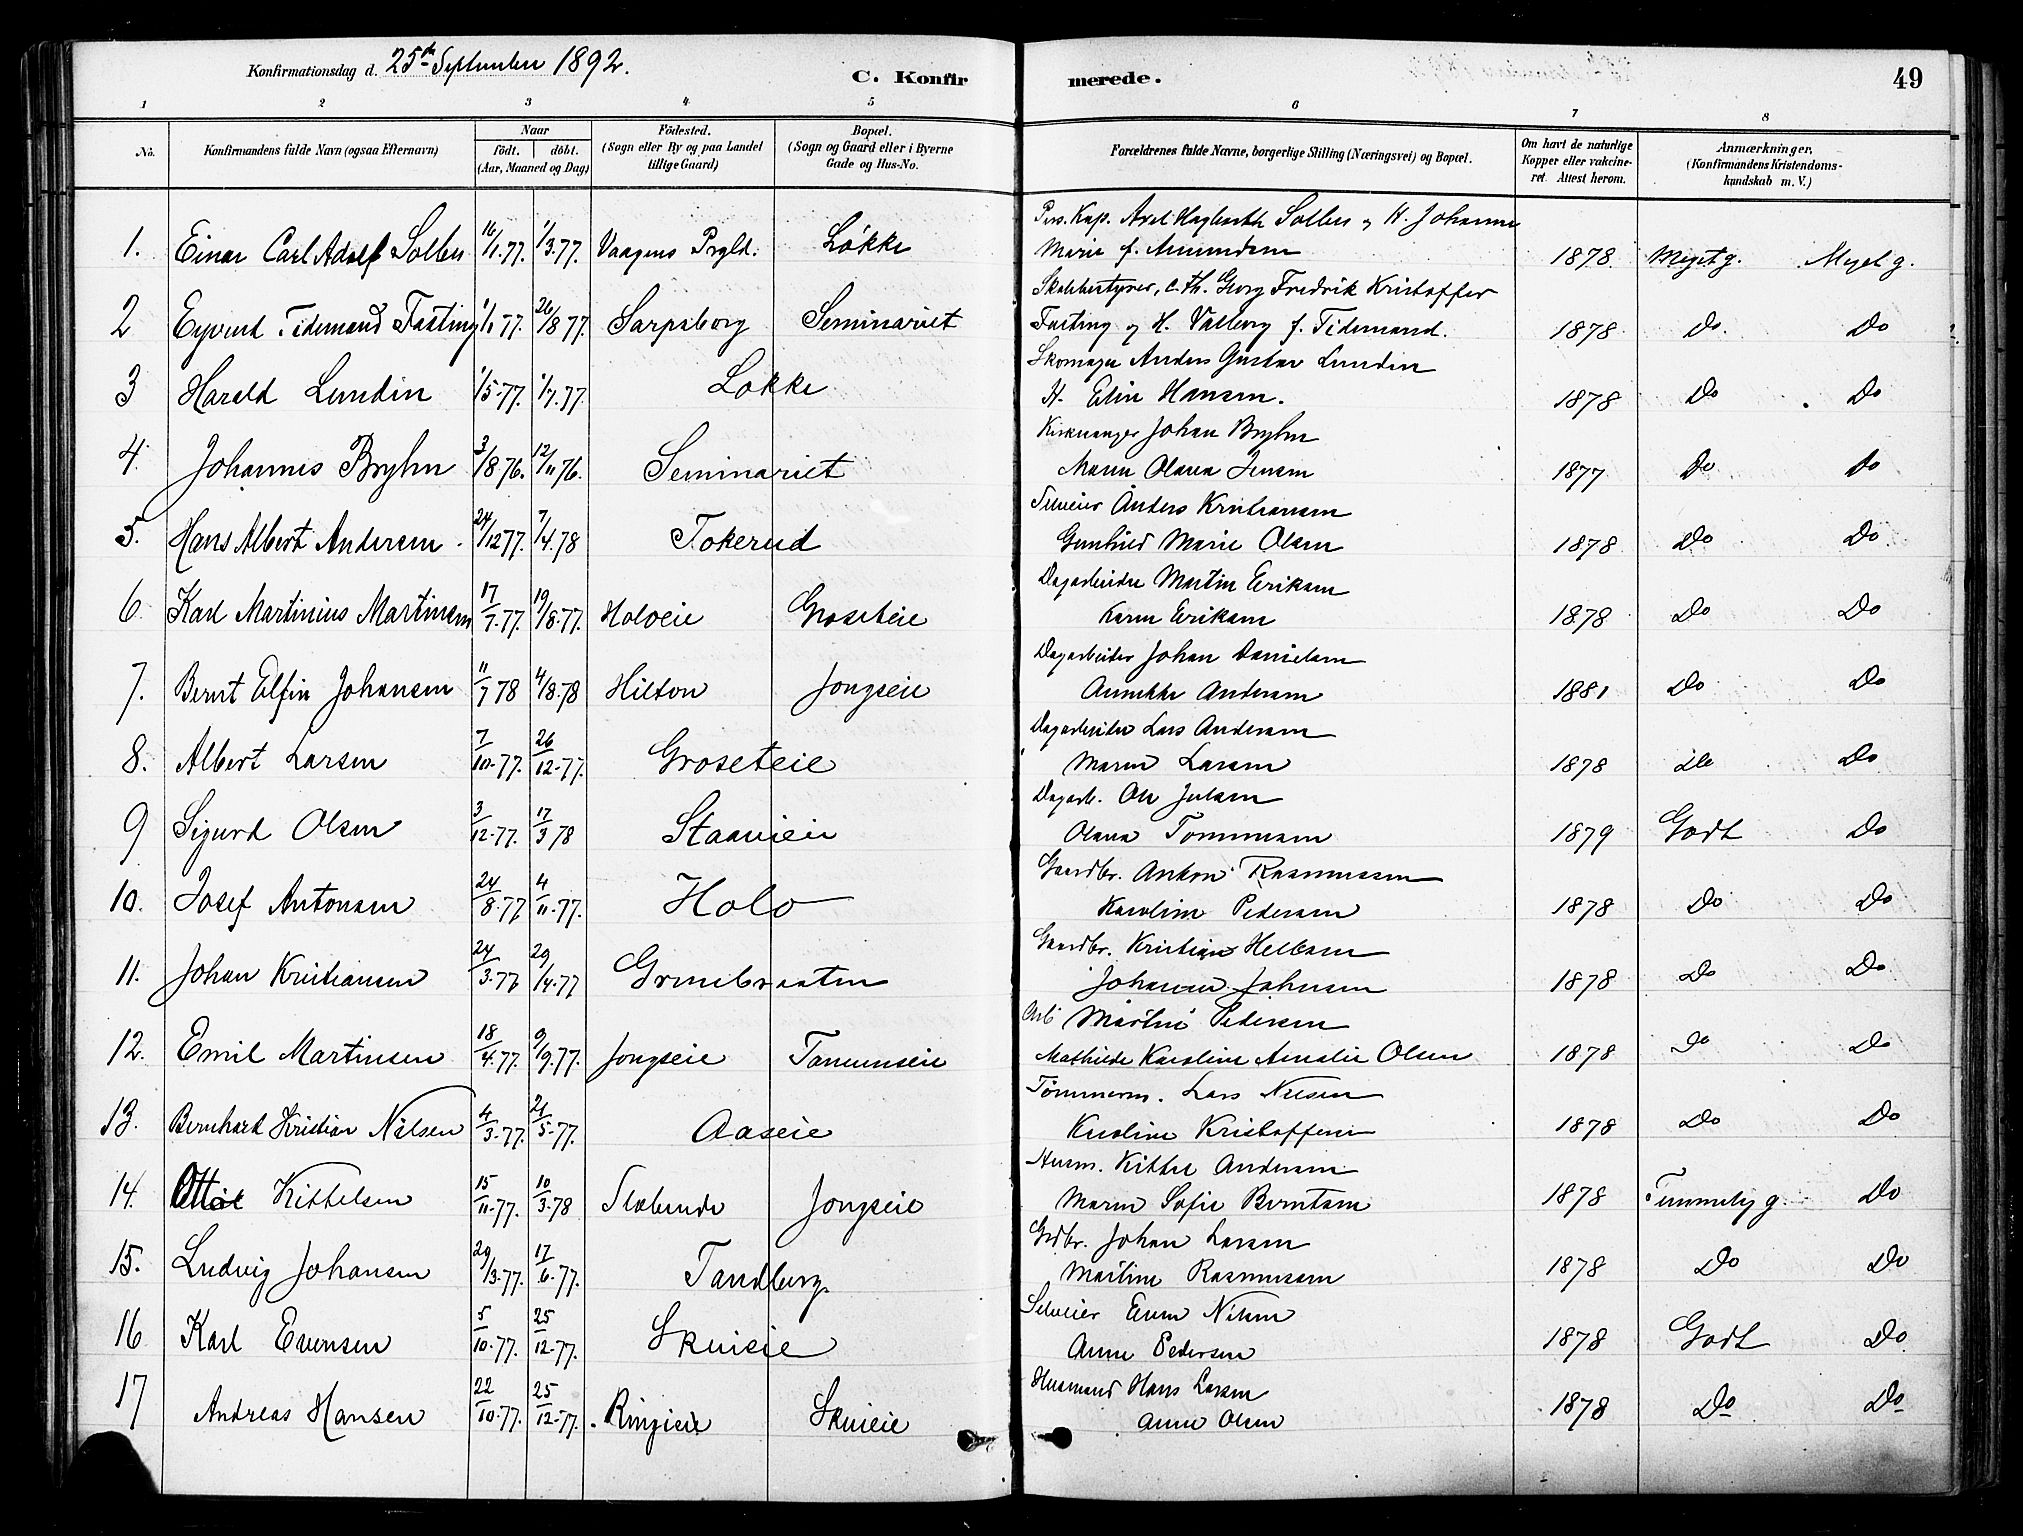 Konfirmationsdag d. 25de September 1892.
C. Konfirmerede.
49
1 2 3 4 5 6 7 8
No.
Konfirmandens fulde Navn (ogsaa Efternavn)
Naar
födt. döbt.
(Aar, Maaned og Dag)
Födested.
(Sogn eller By og paa Landet
tillige Gaard)
Bopæl.
(Sogn og Gaard eller i Byerne
Gade og Hus-No.
Forældrenes fulde Navne, borgerlige Stilling (Næringsvei) og Bopæl.
Om havt de naturlige
Kopper eller vakcine-
ret. Attest herom.
Anmærkninger,
(Konfirmandens Kristendoms-
kundskab m. V.)
Pers. Kap. Axel Hagbarth Solberg og H. Johanne
1. Einar Carl Adolf Solberg 16/1.77. 1/3.77. Vaagens Prgld. Løkke Marie f. Amundsen 1878. Meget g. Meget g.
Skolebestyrer, c. th. Georg Fredrik Kristoffer
2 Eyvind Tidemand Fasting 1/1 77. 26/8 77. Sarpsborg Seminariet Fasting og H. Valborg f. Tidemand. 1878 Do. Do
Skomager Anders Gustav Lundin
3 Harald Lundin 1/5-77. 1/7.77. Løkke H. Elin Hansen. 1878 Do Do
Kirkesanger Johan Bryhn
4. Johannes Bryhn 3/8 76. 12/11 76. Seminariet Maren Olava Jensen 1877 Do Do
Selveier Anders Kristiansen
5. Hans Albert Andersen 24/12 77. 7/4.78 Tokerud Gunhild Marie Olsen 1878 Do Do
Dagarbeider Martin Eriksen
6. Karl Martinius Martinsen 17/7.77. 19/8.77. Holoeie Groseteie Karen Eriksen 1878 Do Do
Dagarbeider Johan Danielsen
7. Bernt Elfin Johansen 11/7 78 4/8.78 Hilton Jongseie Annekke Andersen 1881 Do Do
Dagarbeider Lars Andersen
8. Albert Larsen 7/10-77. 26/12-77. Groseteie Maren Larsen 1878 Do Do
Dagarb. Ole Julsen
9 Sigurd Olsen 3/12-77. 17/3 78 Olava Tommesen 1879 Godt Do
Gaardbr. Anton Rasmussen
10. Josef Antonsen 24/8-77 4/11-77. Holo Karoline Pedersen 1878 Do Do
Gaardbr. Kristian Hellesen
11. Johan Kristiansen 24/3-77 29/4-77 Grinibraaten Johanne Johnsen 1878 Do Do
Arb Martin Pedersen
12. Emil Martinsen 18/4.77. 9/9.77. Jongseie Tanumseie Mathilde Karoline Amalie Olsen 1878 Do Do
Tømmerm. Lars Nilsen
13. Bernhard Kristian Nilsen 4/3-77. 21/5-77. Aaseie Karoline Kristoffersen 1878 Do Do
Husm. Kittel Andersen
14. Otto Kittelsen 15/11-77. 10/3-78 Slæbende Jongseie Maren Sofie Berntsen 1878 Temmelig g. Do
Grdbr. Johan Larsen
15. Ludvig Johansen 29/3-77. 17/6-77. Tandberg Martine Rasmussen 1878 Do Do
Selveier Even Nilsen
16 Karl Evensen 5/10-77. 25/12-77. Skuieie Anne Pedersen 1878 Godt Do
Husmand Hans Larsen
17 Andreas Hansen 22/10-77. 25/12-77. Ringieie Skuieie Anne Olsen 1878 Do Do